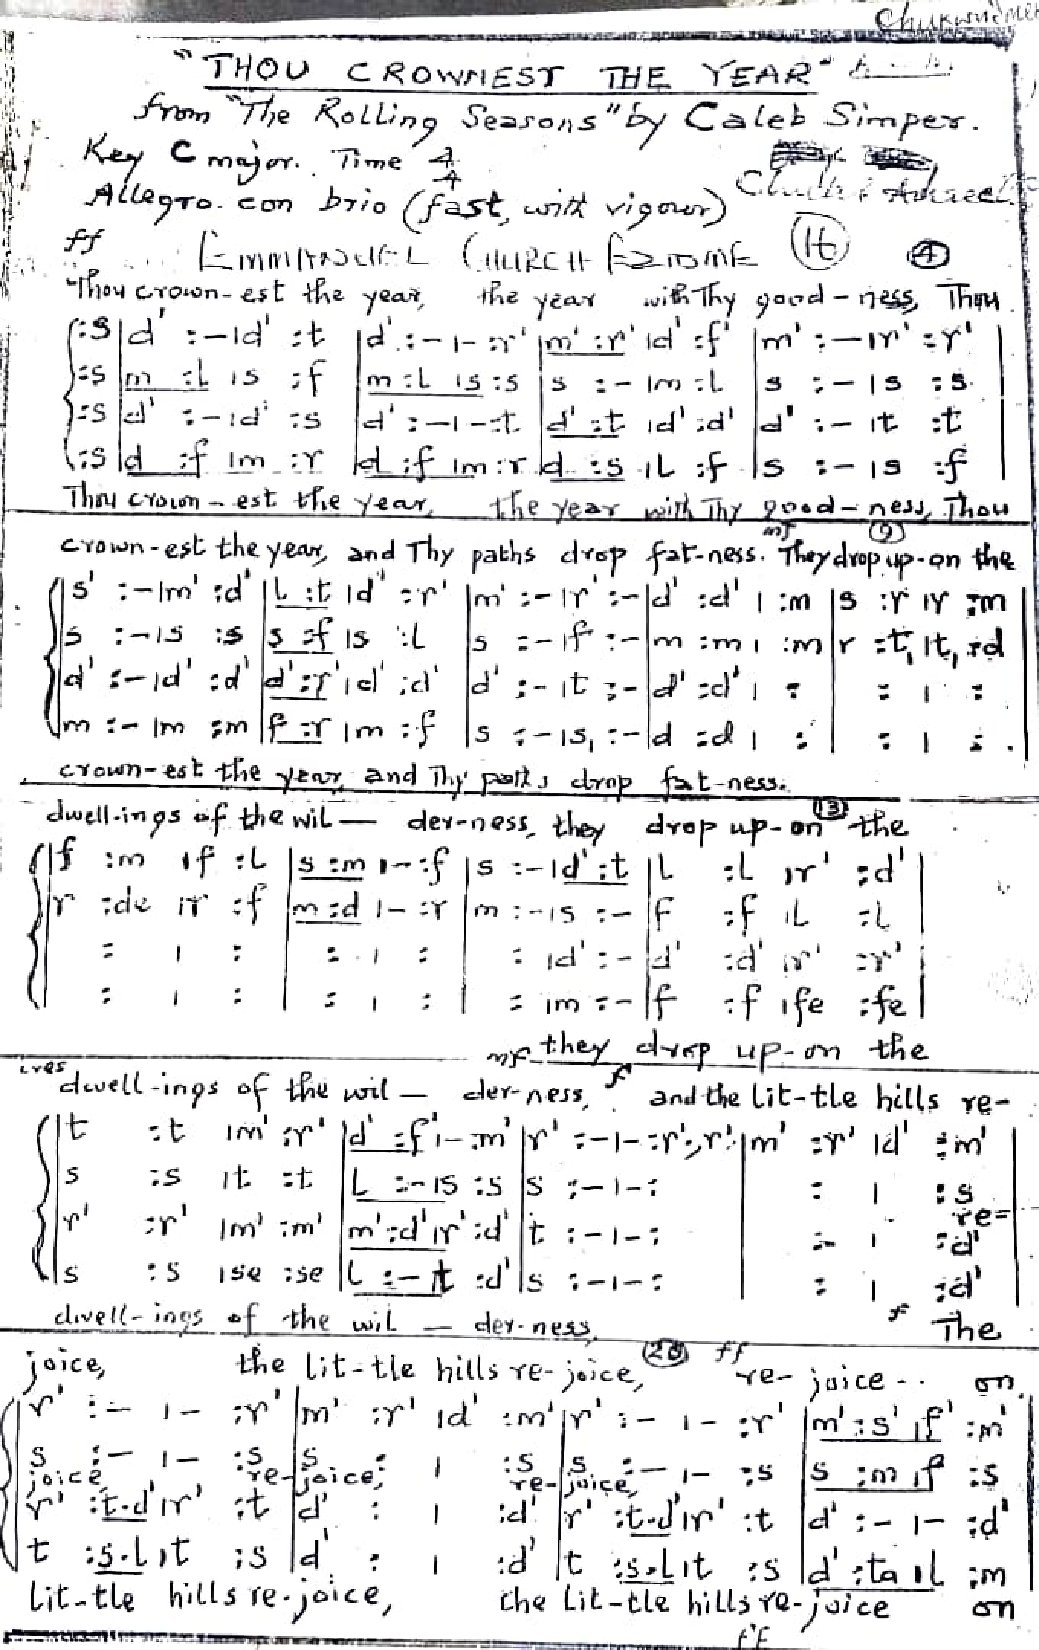 "THOU CROWNEST THE YEAR"
from "The Rolling Seasons" by Caleb Simper.
Key C major. Time 4/4
Allegro. con brio (fast, with vigour)
ff EMMANUEL CHURCH EZIOME 16 4
Thou crown-est the year, the year with Thy good-ness, Thou
:s |d' :-|d' :t |d' :-|- :r' |m' :r' |d' :f' |m' :-|r' :r' |
:s |m :l |s :f |m :l |s :s |s :-|m :l |s :-|s :s |
:s |d' :-|d' :s |d' :-|- :t |d' :t |d' :d' |d' :-|t :t |
:s |d :f |m :r |d :f |m :r |d :s |l :f |s :-|s :f |
Thou crown-est the year, the year with Thy good-ness, Thou
mf 9
crown-est the year, and Thy paths drop fat-ness. They drop up-on the
s' :-|m' :d' |l :t |d' :r' |m' :-|r' :-|d' :d' | :m |s :r |r :m
s :-|s :s |s :f |s :l |s :-|f :-|m :m | :m |r :t, |t, :d
d' :-|d' :d' |d' :r' |d' :d' |d' :-|t :-|d' :d' | : | : | :
m :-|m :m |f :r |m :f |s :-|s, :-|d :d | : | : | : .
crown-est the year, and Thy paths drop fat-ness.
dwell-ings of the wil- der-ness, they drop up-on 13 the
f :m |f :l |s :m |- :f |s :-|d' :t |l :l |r' :d' |
r :de |r :f |m :d |- :r |m :-|s :- |f :f |l :l
: | : | : | : | : |d' :-|d' :d' |r' :r' |
: | : | : | : | : |m :-|f :f |fe :fe |
mf they drop up-on the
dwell-ings of the wil- der-ness, f and the lit-tle hills re-
t :t |m' :r' |d' :f' |- :m' |r' :-|- :r'.,r' |m' :r' |d' :m' |
s :s |t :t |l :-|s :s |s :-|- : | : | :s
re-
r' :r' |m' :m' |m' :d' |r' :d' |t :-|- : | : | :d'
s :s |se :se |l :-|t :d' |s :-|- : | : | :d'
dwell-ings of the wil- der-ness, f The
joice, the lit-tle hills re-joice, 20 ff re-joice-- on
r' :- |- :r' |m' :r' |d' :m' |r' :- |- :r' |m' :s' |f' :m'
s :- |- :s |s : | :s |s :- |- :s |s :m |f :s
joice, re-joice, re-joice,
r' :t.d' |r' :t |d' : | :d' |r' :t.d' |r' :t |d' :-|- :d'
t :s.l |t :s |d' : | :d' |t :s.l |t :s |d' :ta |l :m
lit-tle hills re-joice, the lit-tle hills re-joice on
ff